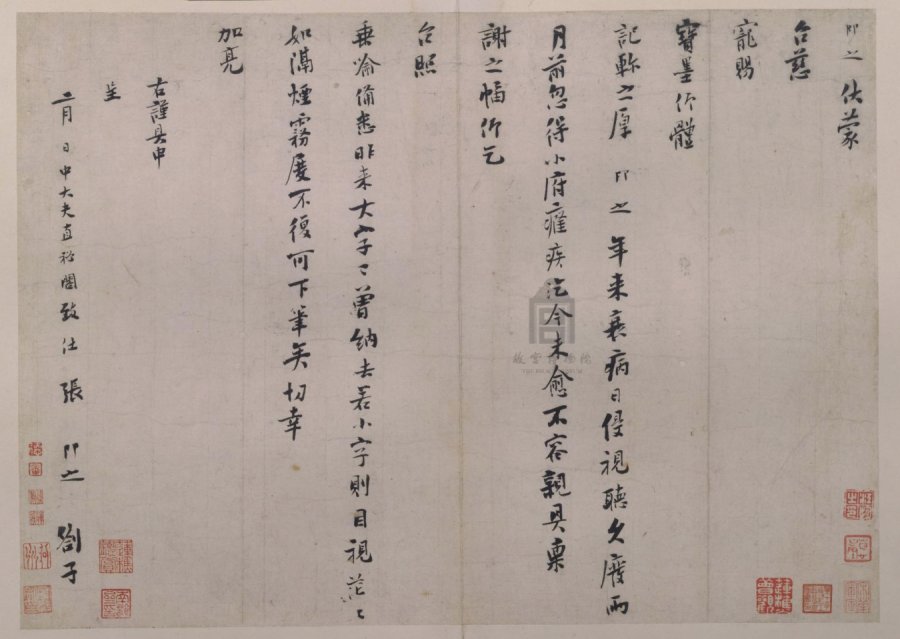 即之 伏蒙
台慈
寵賜
寶墨竹體
記軫之厚 即之 年来衰病日侵視聽久廢兩
月前忽得小府癃疾迄今未愈不容親具稟
謝之幅仰乞
台照
垂喻備悉昨来大字々曽納去若小字則目視茫々
如隔煙霧屡不復可下筆矣切幸
加亮
右謹具申
呈
二月 日中大夫直秘閣致仕 張 即之 劄子
故宫博物院
THE PALACE MUSEUM